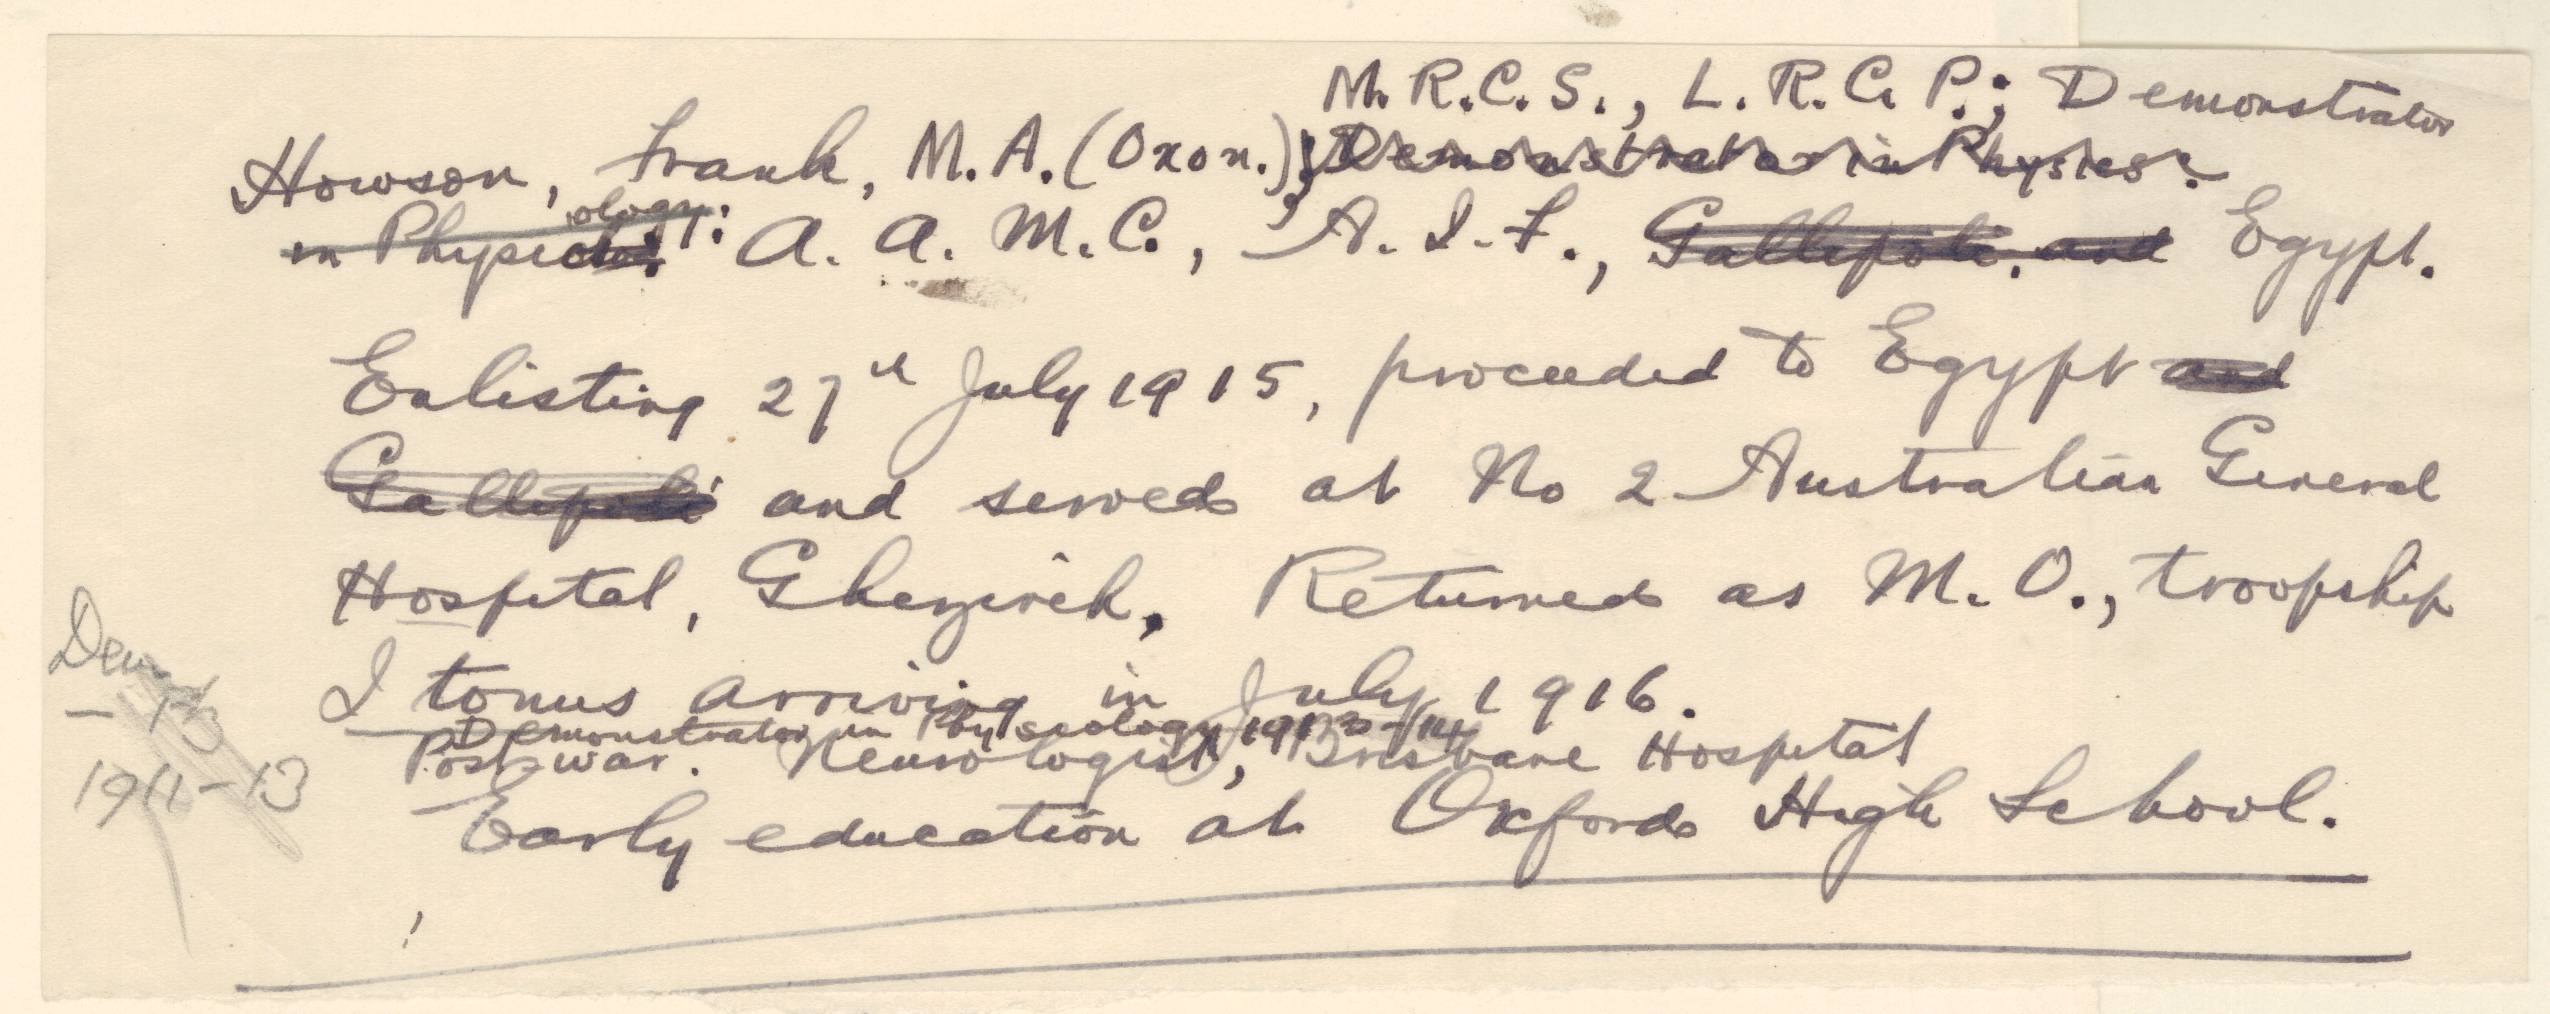 M.R.C.S., L.R.C.P.; Demonstrator
Howson, Frank, M.A. (Oxon.); Demonstrator in Physics.
in Physiology: A.A.M.C., A.I.F., Gallipoli, and Egypt.
Enlisting 27th July 1915, proceeded to Egypt and
Gallipoli and served at No 2 Australian General
Hospital, Ghezireh, Returned as M.O., troopship
Itonus arriving in July 1916.
Demonstrator in Physiology, 1913-14
Post war. Neurologist, Brisbane Hospital
Early education at Oxford High School.
Dem
- 13
1911-13